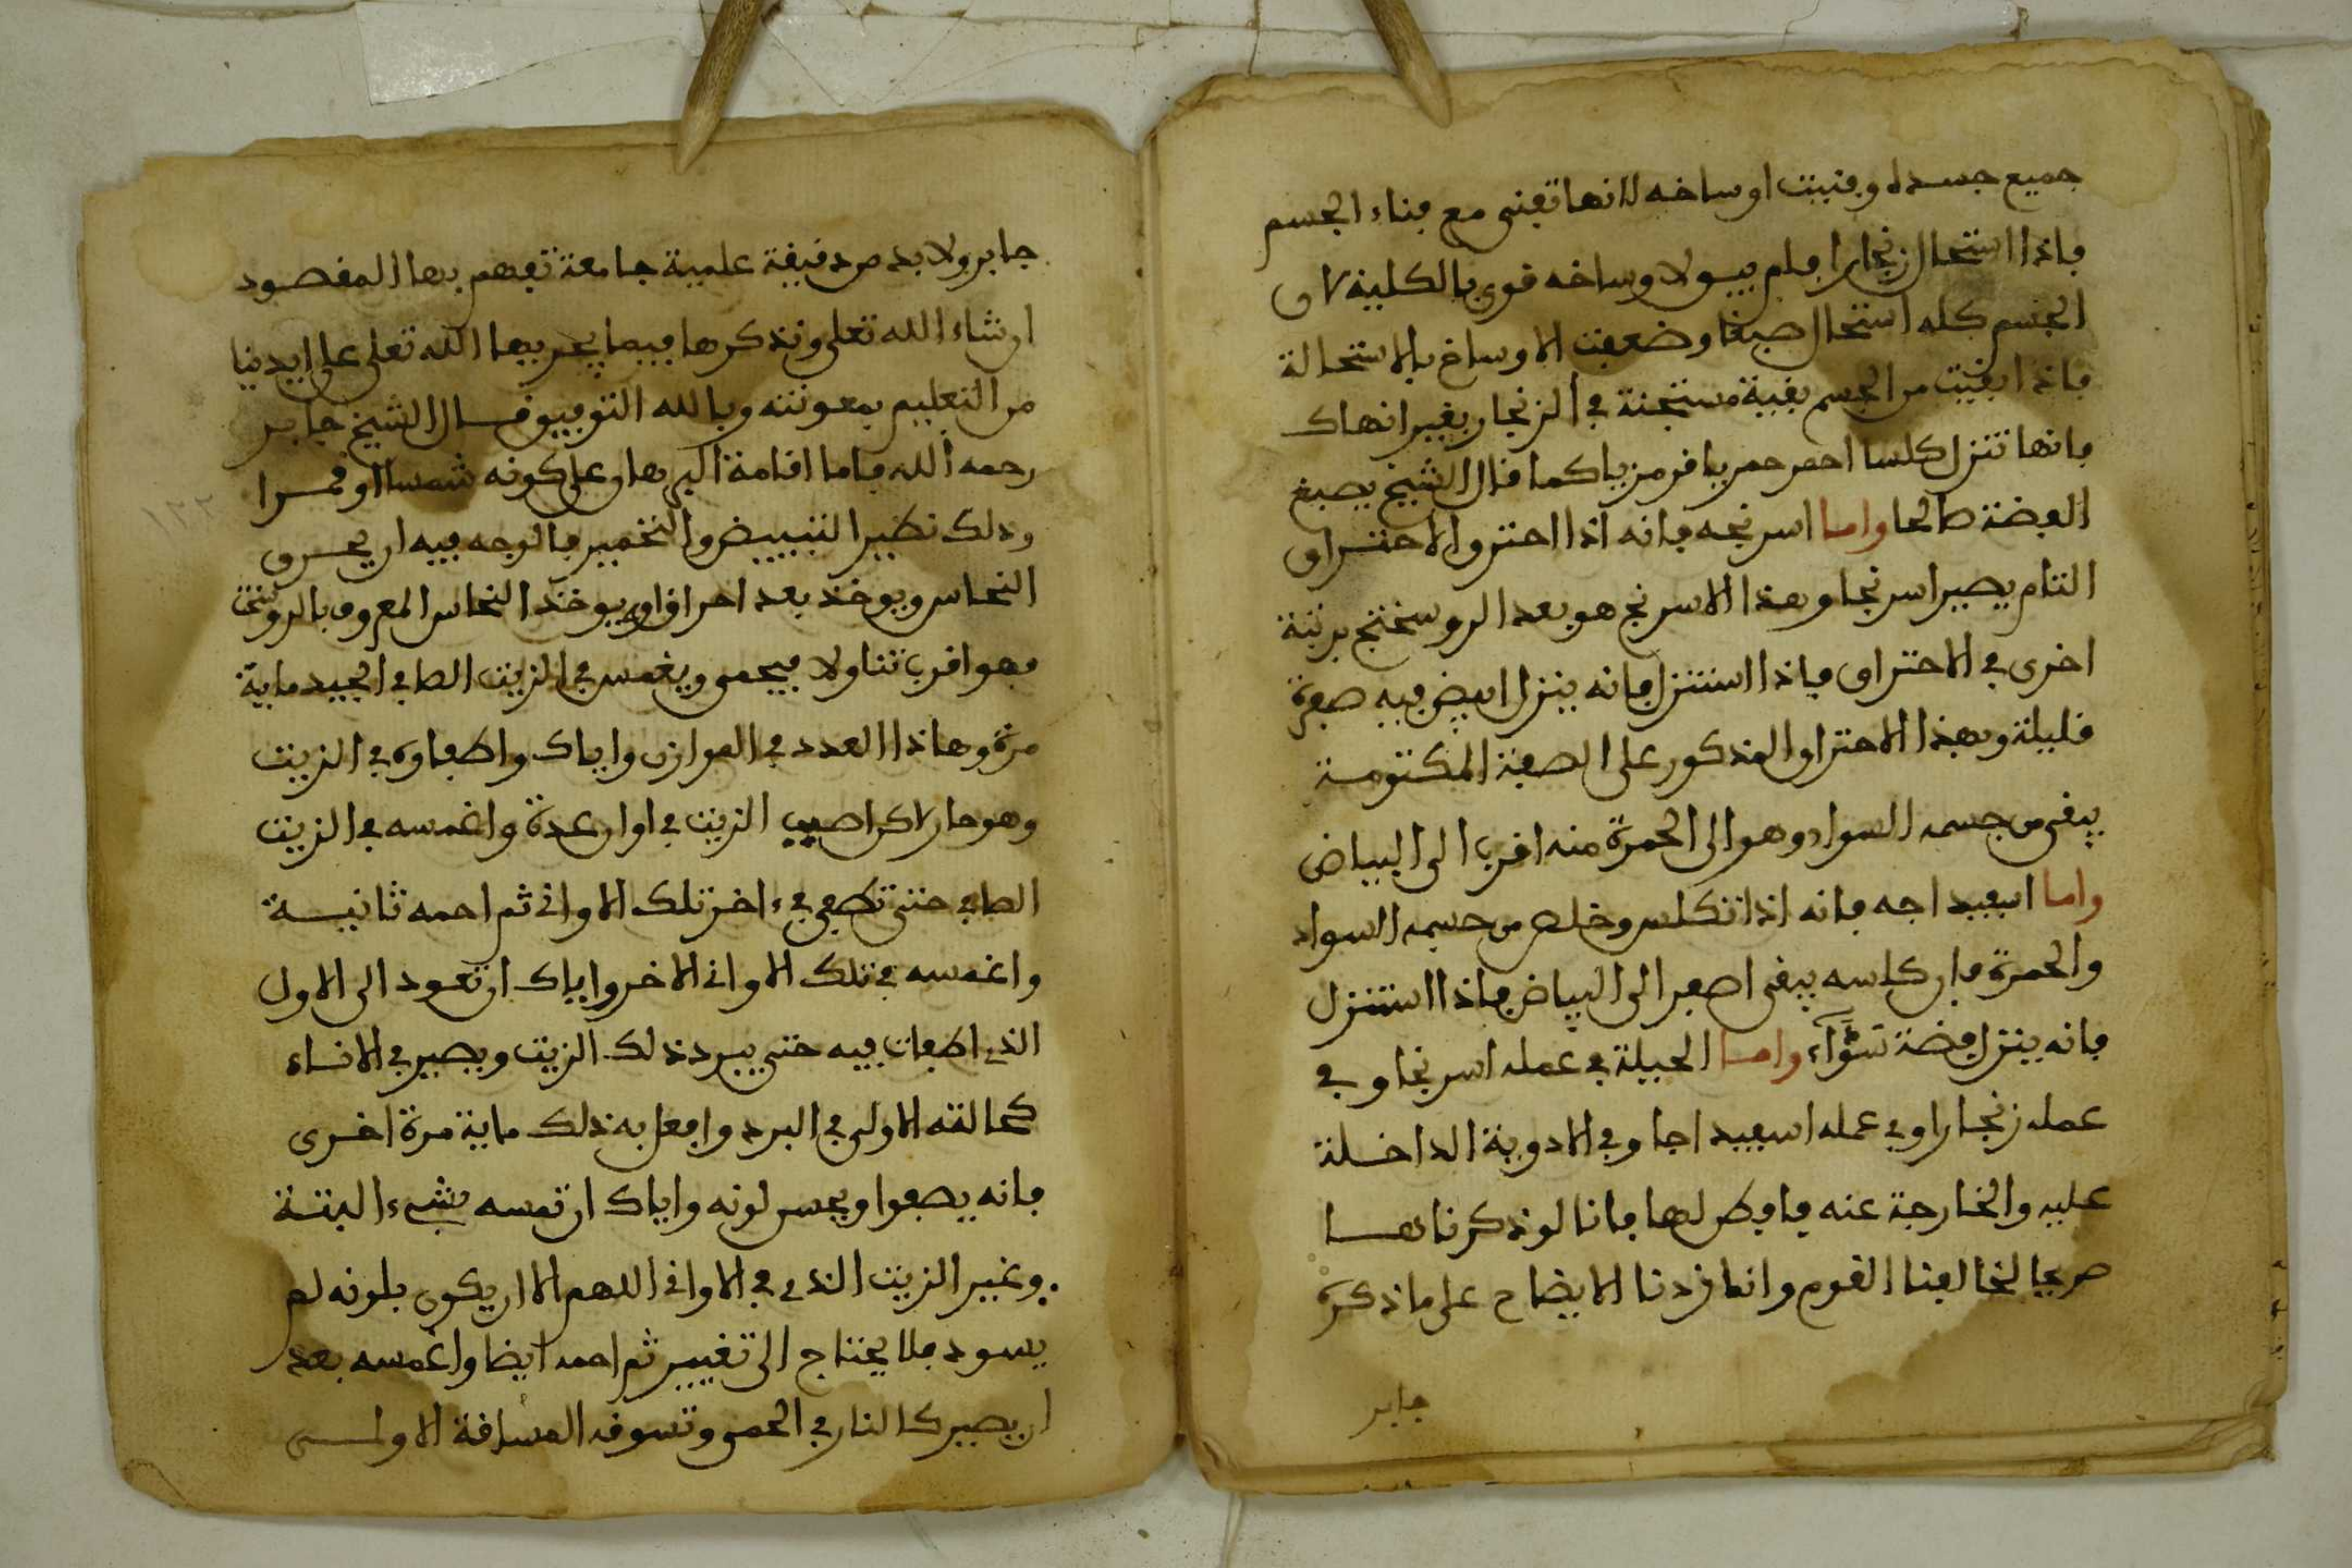 جميع جسده وفنيت اوساخه لانها تفنى مع فناء الجسم
فاذا استحال زنجارا فلم يبق لاوساخه قوى بالكلية لان
الجسم كله استحال صبغا وضعفت الاوساخ بالاستحالة
فاذا بقيت من الجسم بقية مستجنة في الزنجار بغير انهاك
فانها تنزل كلسا احمر حمريا قرمزيا كما قال الشيخ يصبغ
الفضة صالحا واما اسرنجه فانه اذا احترق الاحتراق
التام يصير اسرنجا وهذا الاسرنج هو بعد الروسختج برتبة
اخرى في الاحتراق فاذا استنزل فانه ينزل ابيض فيه صفرة
قليلة وبهذا الاحتراق المذكور على الصفة المكتومة
يبقى من جسمه السواد وهو الى الحمرة منه اقرب الى البياض
واما اسفيداجه فانه اذا تكلس وخلص من جسمه السواد
والحمرة فان كلسه يبقى اصفر الى البياض فاذا استنزل
فانه ينزل فضة سوآء واما الحيلة في عمله اسرنجا وفي
عمله زنجارا وفي عمله اسفيداجا وفي الادوية الداخلة
عليه والخارجة عنه فافطن لها فانا لو ذكرناها
صريحا لخالفنا القوم وانما زدنا الايضاح على ما ذكره
جابر
جابر ولا بد من دقيقة علمية جامعة تفهم بها المقصود
ان شاء الله تعلى ونذكرها فيما يجريها الله تعلى على ايدينا
من التعليم بمعونته وبالله التوفيق قال الشيخ جابر
رحمه الله فاما اقامة البرهان على كونه شمسا او قمرا
وذلك نظير التبييض والتحمير فالوجه فيه ان يحرق
النحاس ويوخذ بعد احراق او يوخذ النحاس المعروف بالروسختج
فهو اقرب تناولا فيحمى ويغمس في الزيت الصافي الجيد ماية
مرة وهاذا العدد في الموازن واياك واطفاوه في الزيت
وهو حار لاكن اصبب الزيت في اوان عدة واغمسه في الزيت
الصافي حتى تطفى في ءاخر تلك الاواني ثم احمه ثانية
واغمسه في تلك الاواني الاخر واياك ان تعود الى الاول
الذي اطفات فيه حتى يبرد ذلك الزيت ويصير في الاناء
كحالته الاولى في البرد وافعل به ذلك ماية مرة اخرى
فانه يصفوا ويحسن لونه واياك ان تمسه بشيء البتة
وغير الزيت الذي في الاواني اللهم الا ان يكون بلونه لم
يسود فلا يحتاج الى تغيير ثم احمه ايضا واغمسه بعد
ان يصير كالنار في الحمى وتسوقه المساقة الاولى
١٢٢